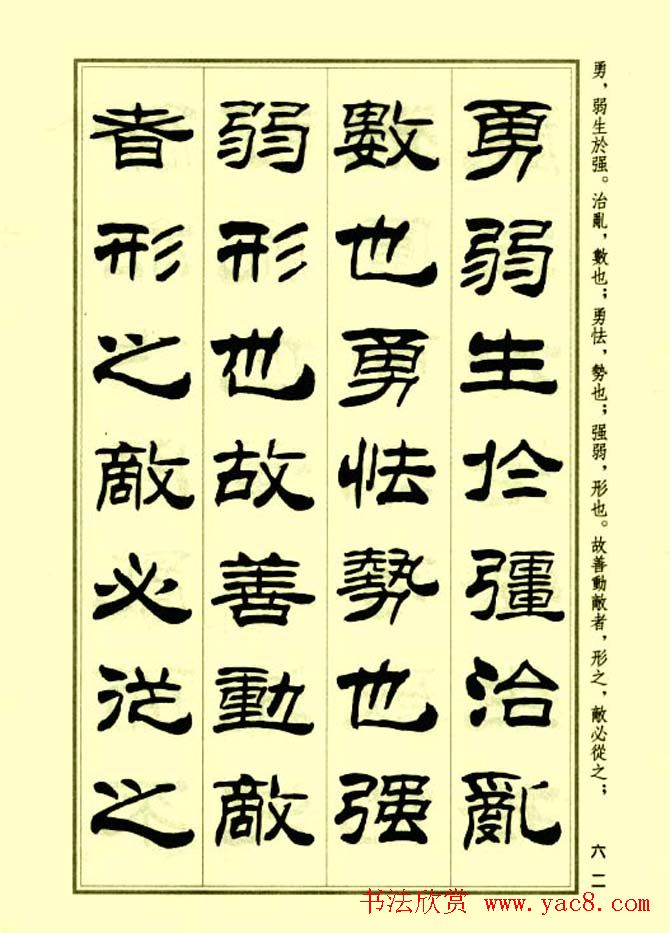 勇弱生於彊治亂
數也勇怯勢也强
弱形也故善動敵
者形之敵必從之
勇，弱生於强。治亂，數也；勇怯，勢也；强弱，形也。故善動敵者，形之，敵必從之；
六二
书法欣赏 www.yac8.com